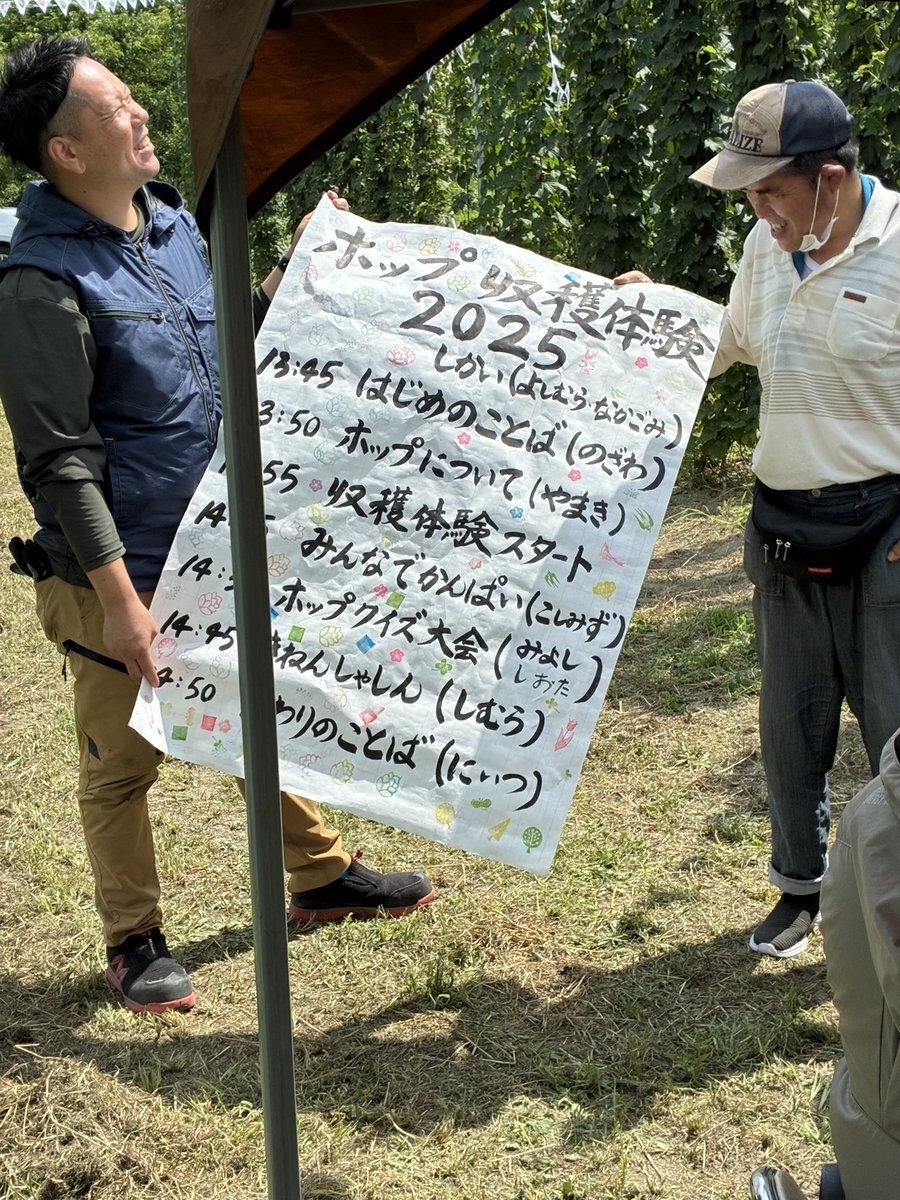 ホップ収穫体験
2025
しかい(よしむら・なかごみ)
13:45 はじめのことば(のざわ)
3:50 ホップについて(やまき)
55 収穫体験スタート
14: みんなでかんぱい(こしみず)
14: ホップクイズ大会(みよし しおた)
14:45 ねんしゃしん(しむら)
4:50 わりのことば(にいつ)